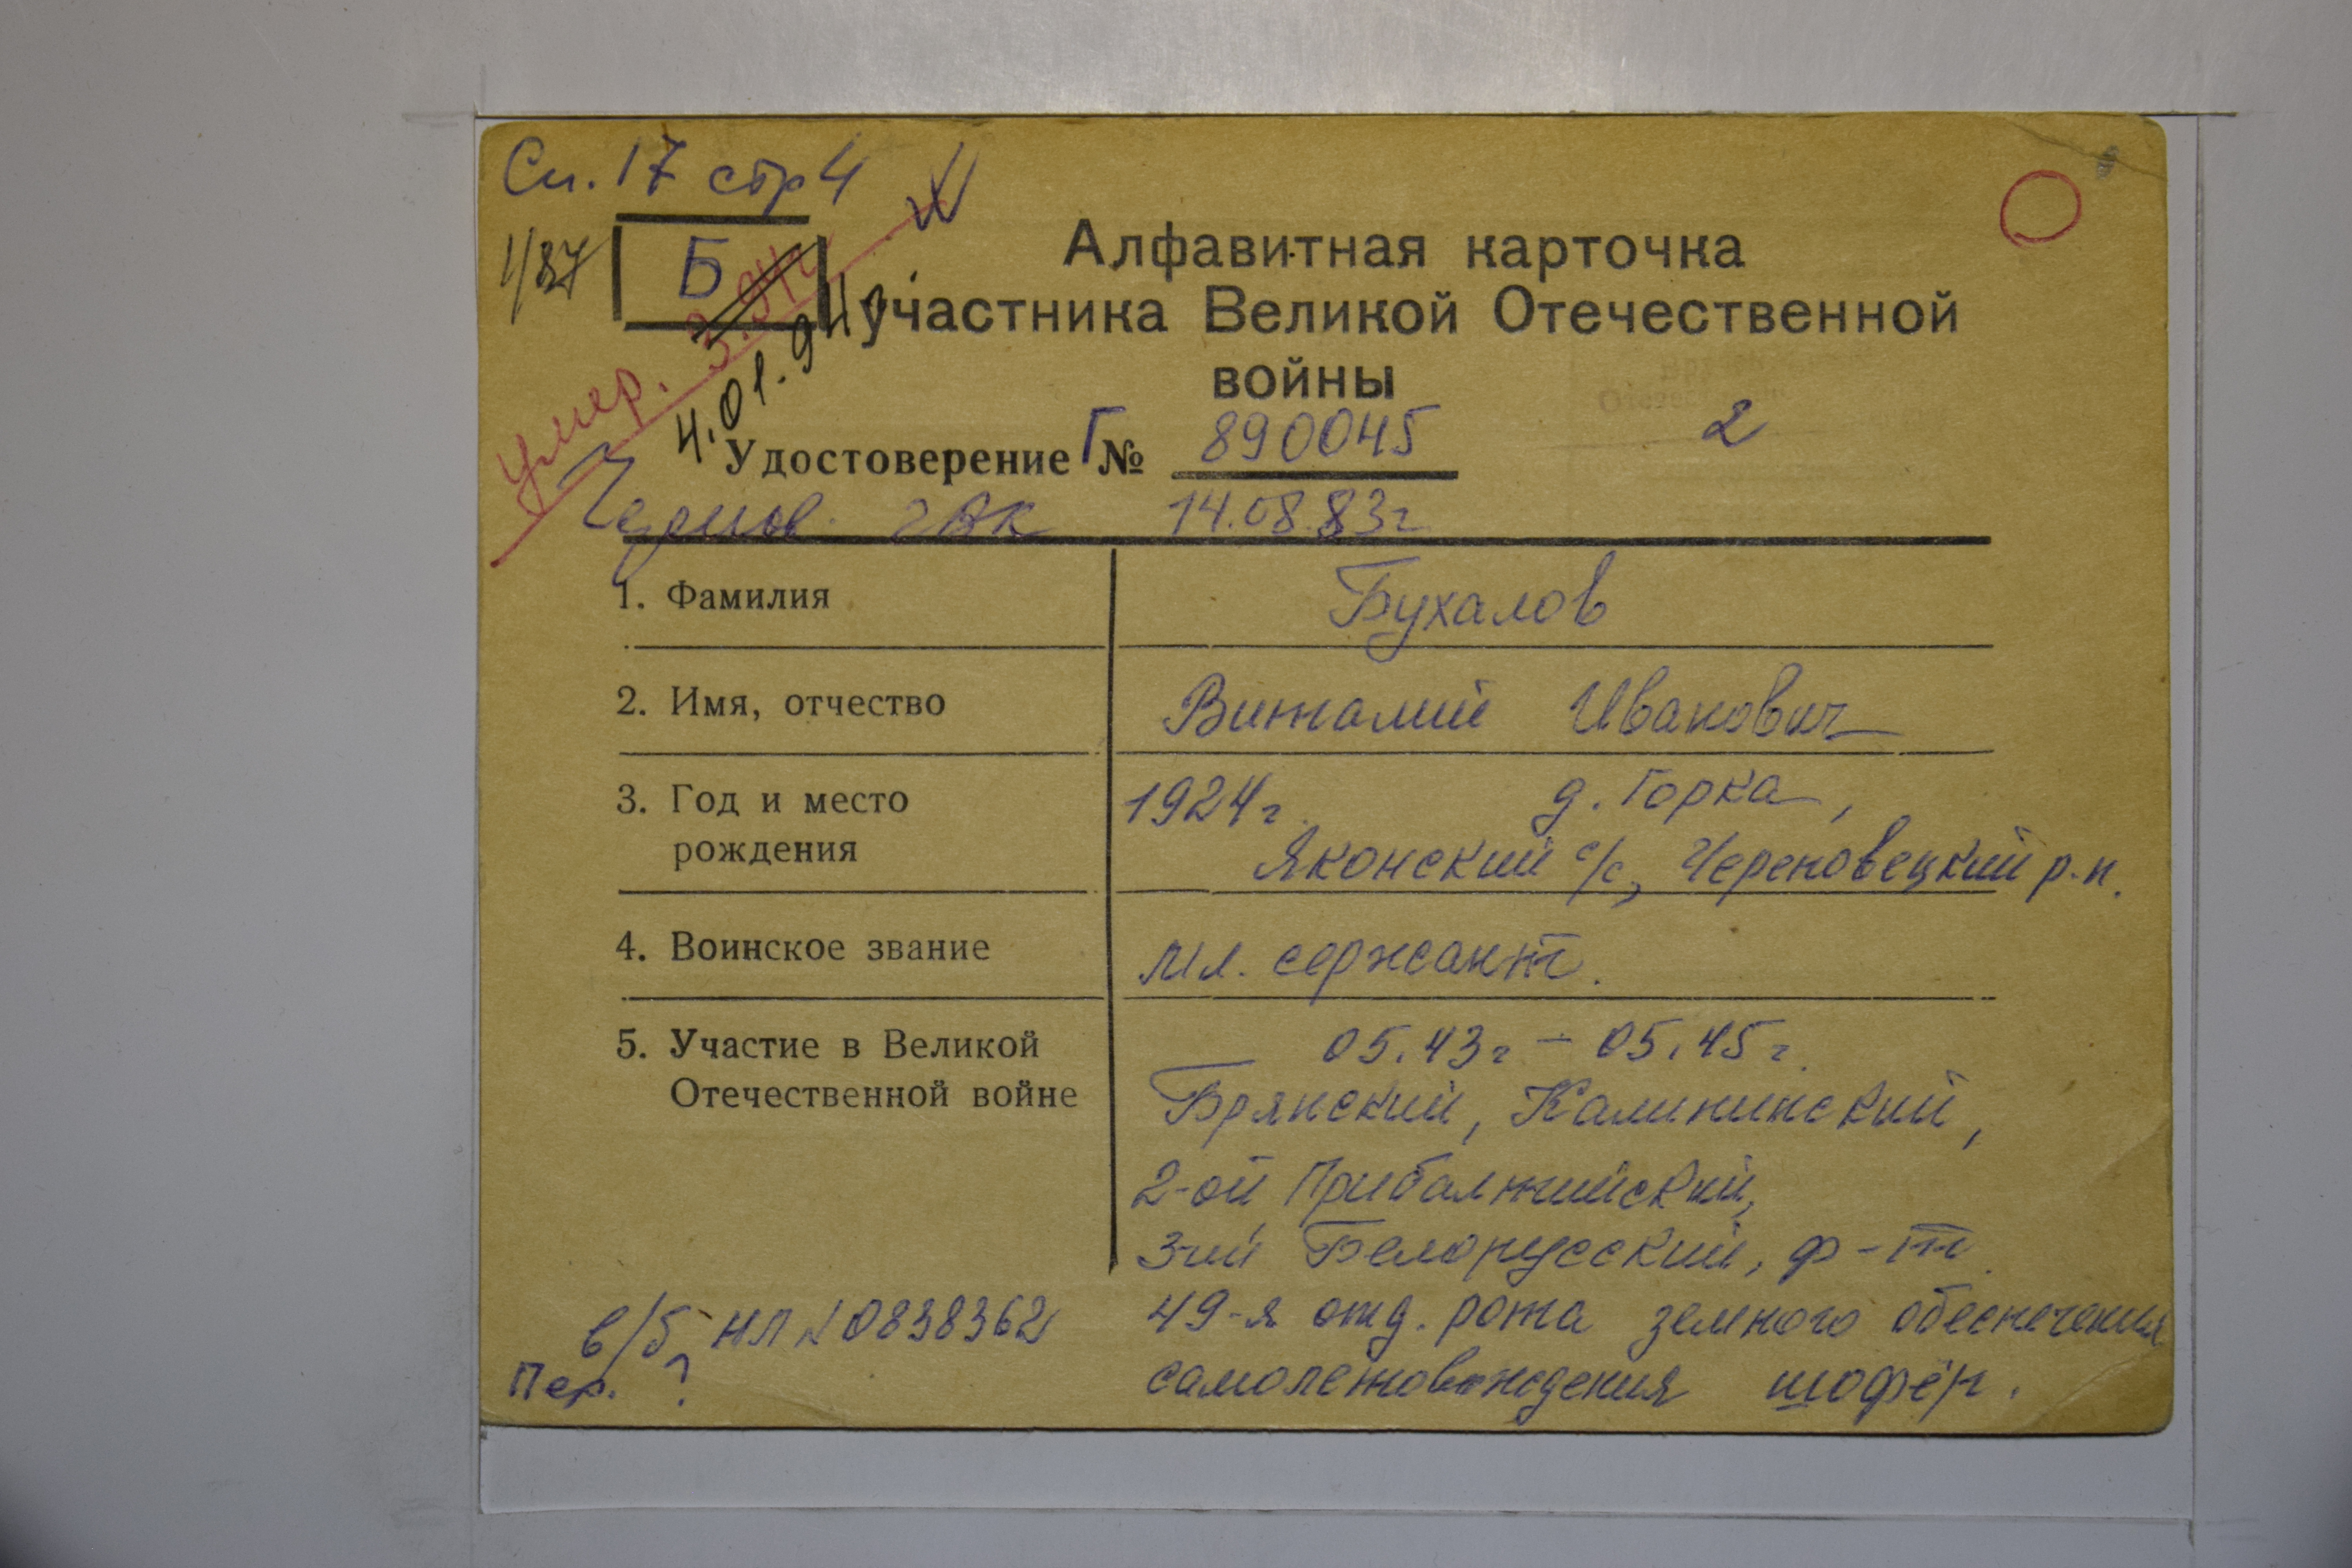 Сп. 17 стр 4
1/87
Б
умер. 3.94г
4.01.94г.
Алфавитная карточка
участника Великой Отечественной
войны
Удостоверение Г № 890045
2
14.08.83г
1. Фамилия Бухалов
2. Имя, отчество Виталий Иванович
3. Год и место 1924г. д. Горка,
рождения Яконский с/с, Череповецкий р-н.
4. Воинское звание мл. сержант.
5. Участие в Великой 05.43г – 05.45г.
Отечественной войне Брянский, Калининский,
2-ой Прибалтийский,
3-ий Белорусский, ф-т.
в/б НЛ № 0838362 49-я отд. рота земного обеспечения
Пер. ? самолетовождения шофёр.